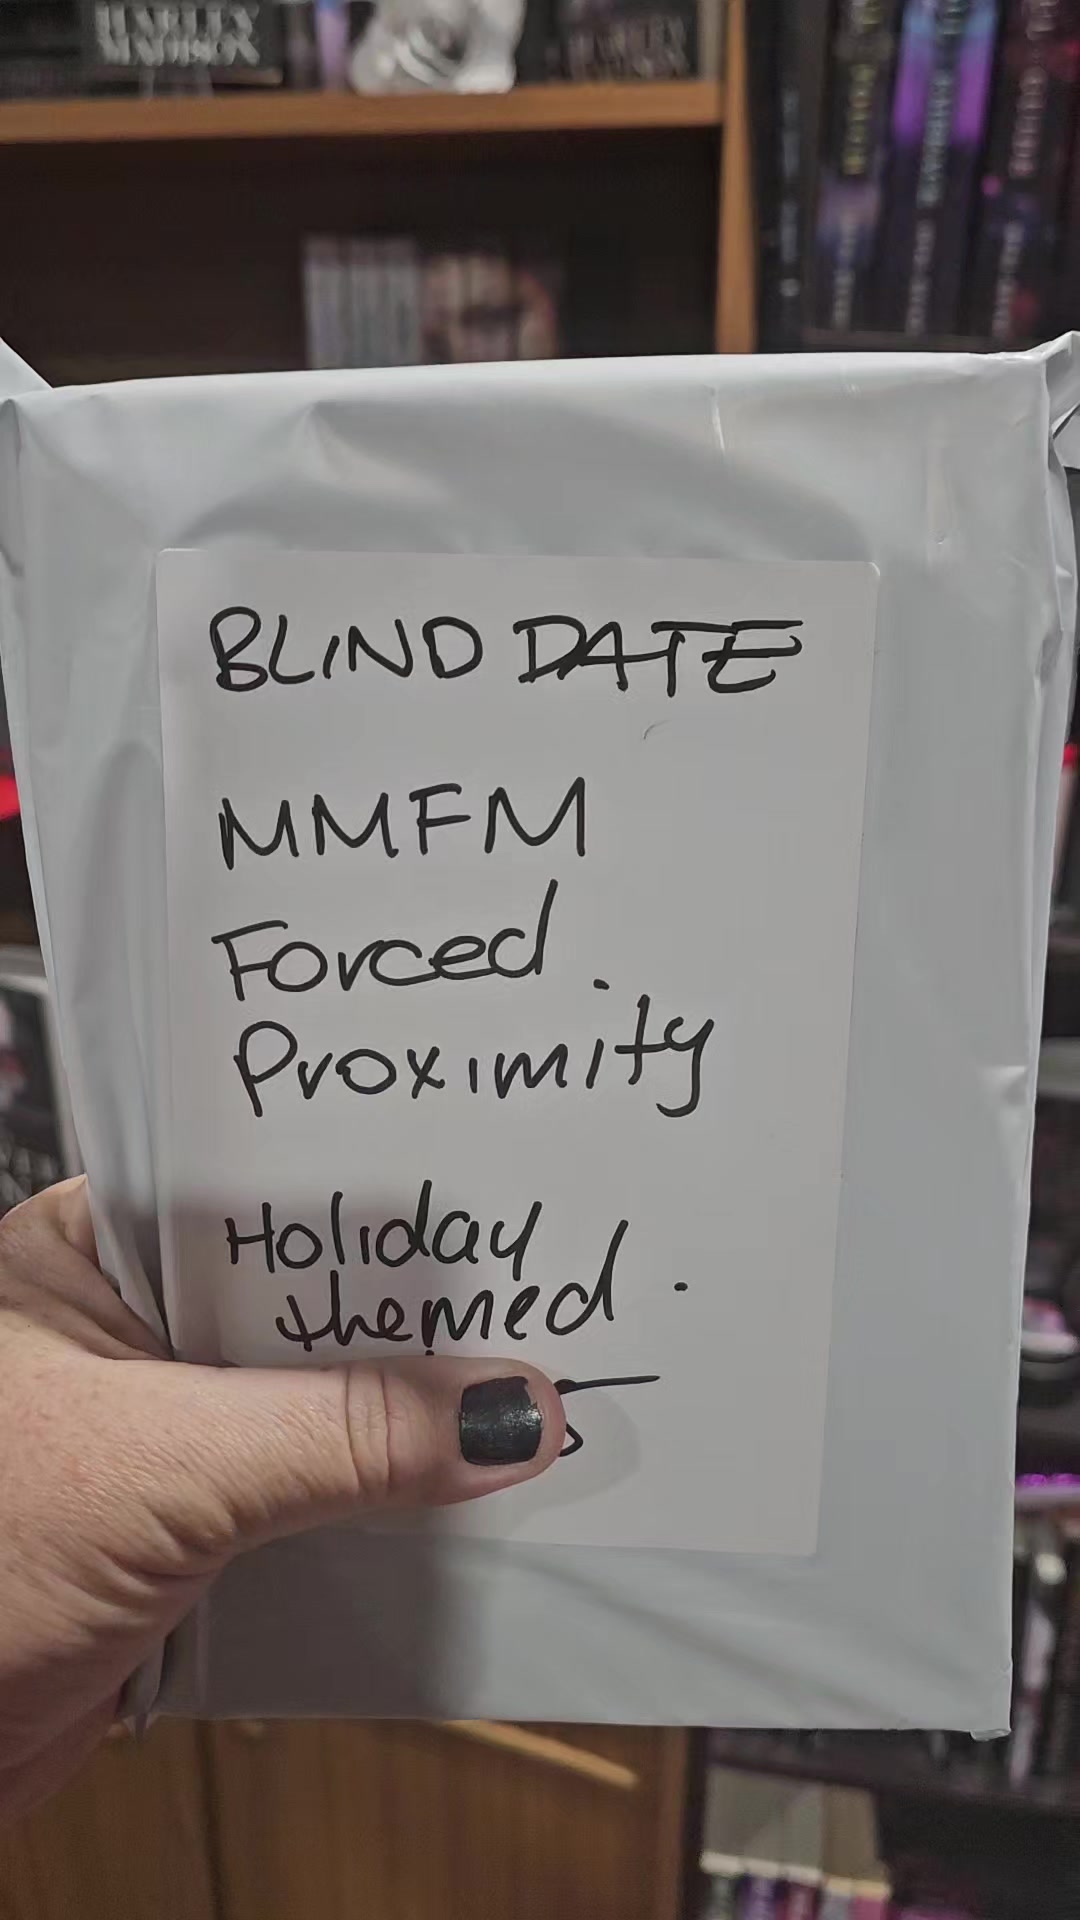 HARLEY
MADISON
BLIND DATE
MMFM
Forced
Proximity
Holiday
themed.